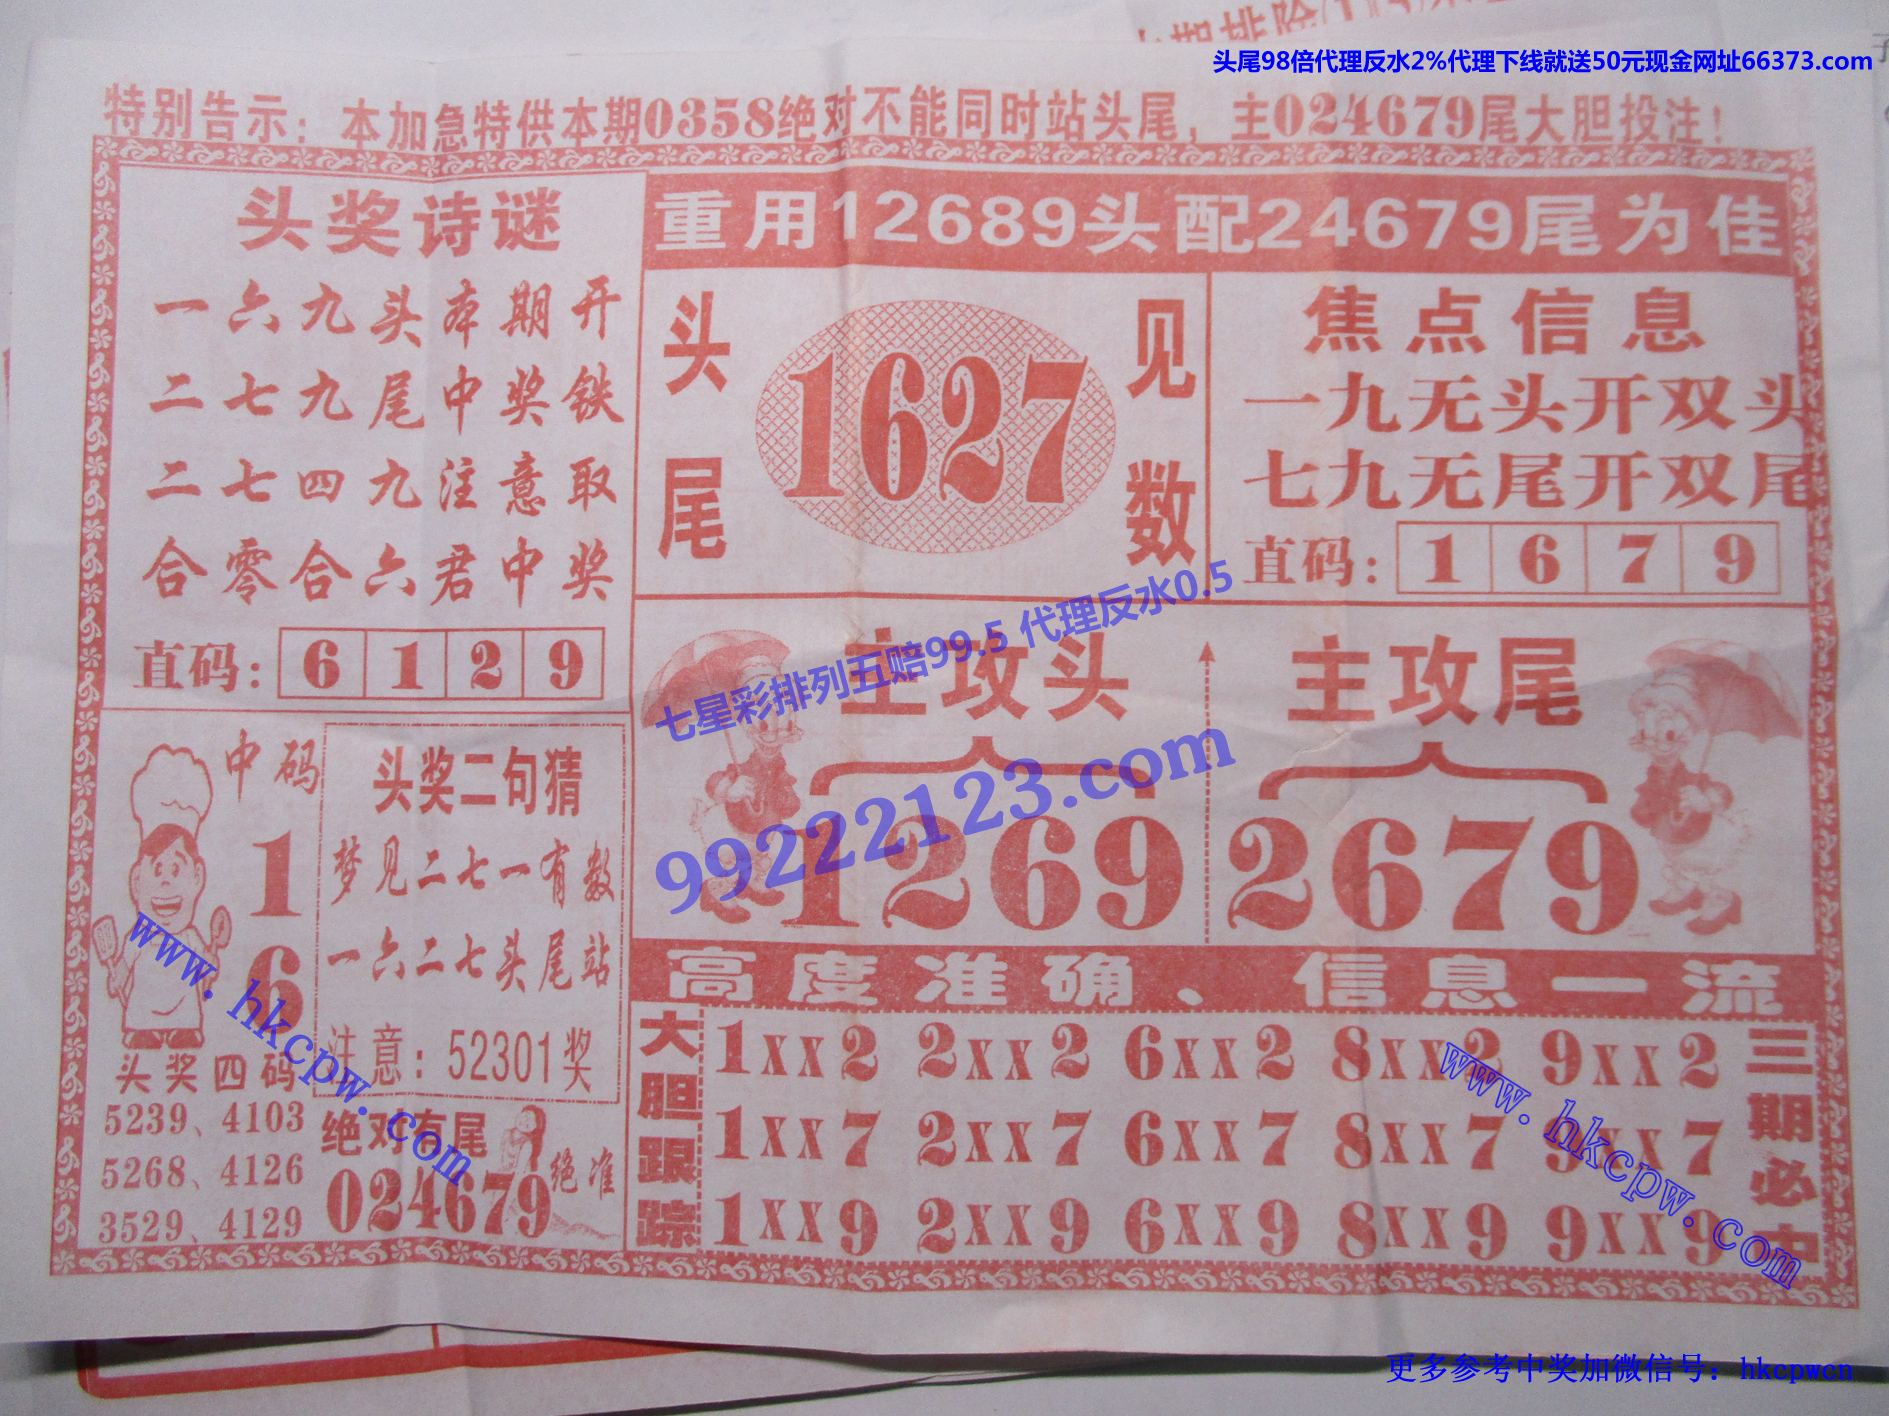 头尾98倍代理反水2%代理下线就送50元现金网址66373.com
特别告示：本加急特供本期0358绝对不能同时站头尾，主024679尾大胆投注！
头奖诗谜
一六九头本期开
二七九尾中奖铁
二七四九注意取
合零合六君中奖
直码：6 1 2 9
重用12689头配24679尾为佳
头尾
1627
见数
焦点信息
一九无头开双头
七九无尾开双尾
直码：1 6 7 9
七星彩排列五赔99.5 代理反水0.5
99222123.com
主攻头
1269
主攻尾
2679
中码
1
6
头奖四码
5239、4103
5268、4126
3529、4129
头奖二句猜
梦见二七一有数
一六二七头尾站
注意：52301奖
绝对有尾
024679
绝准
www.hkcpw.com
高度准确、信息一流
大胆跟踪
1XX2 2XX2 6XX2 8XX2 9XX2
1XX7 2XX7 6XX7 8XX7 9XX7
1XX9 2XX9 6XX9 8XX9 9XX9
三期必中
www.hkcpw.com
更多参考中奖加微信号：hkcpwcn